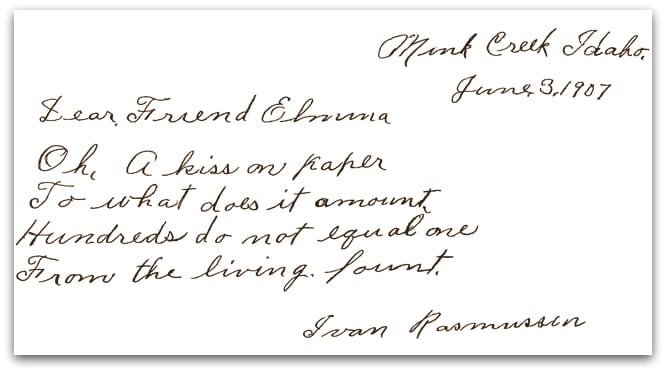 Mink Creek Idaho.
June, 3, 1907
Dear, Friend Elmina
Oh, A kiss on paper
To what does it amount,
Hundreds do not equal one
From the living. fount.
Ivan Rasmussen